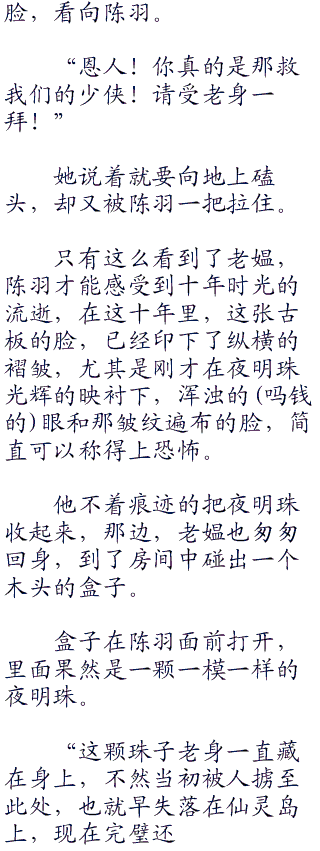 脸，看向陈羽。
“恩人！你真的是那救
我们的少侠！请受老身一
拜！”
她说着就要向地上磕
头，却又被陈羽一把拉住。
只有这么看到了老媪，
陈羽才能感受到十年时光的
流逝，在这十年里，这张古
板的脸，已经印下了纵横的
褶皱，尤其是刚才在夜明珠
光辉的映衬下，浑浊的(吗钱
的)眼和那皱纹遍布的脸，简
直可以称得上恐怖。
他不着痕迹的把夜明珠
收起来，那边，老媪也匆匆
回身，到了房间中碰出一个
木头的盒子。
盒子在陈羽面前打开，
里面果然是一颗一模一样的
夜明珠。
“这颗珠子老身一直藏
在身上，不然当初被人掳至
此处，也就早失落在仙灵岛
上，现在完璧还